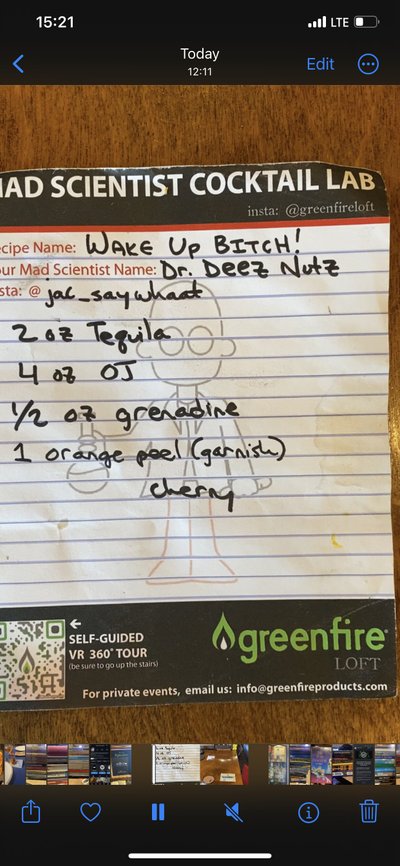 15:21
LTE
Today
12:11
Edit
MAD SCIENTIST COCKTAIL LAB
insta: @greenfireloft
ecipe Name: WAKE UP BITCH!
our Mad Scientist Name: Dr. Deez Nutz
sta: @ jac_saywhaat
2 oz Tequila
4 oz OJ
1/2 oz grenadine
1 orange peel (garnish)
cherry
←
SELF-GUIDED
VR 360° TOUR
(be sure to go up the stairs)
greenfire
LOFT
For private events, email us: info@greenfireproducts.com